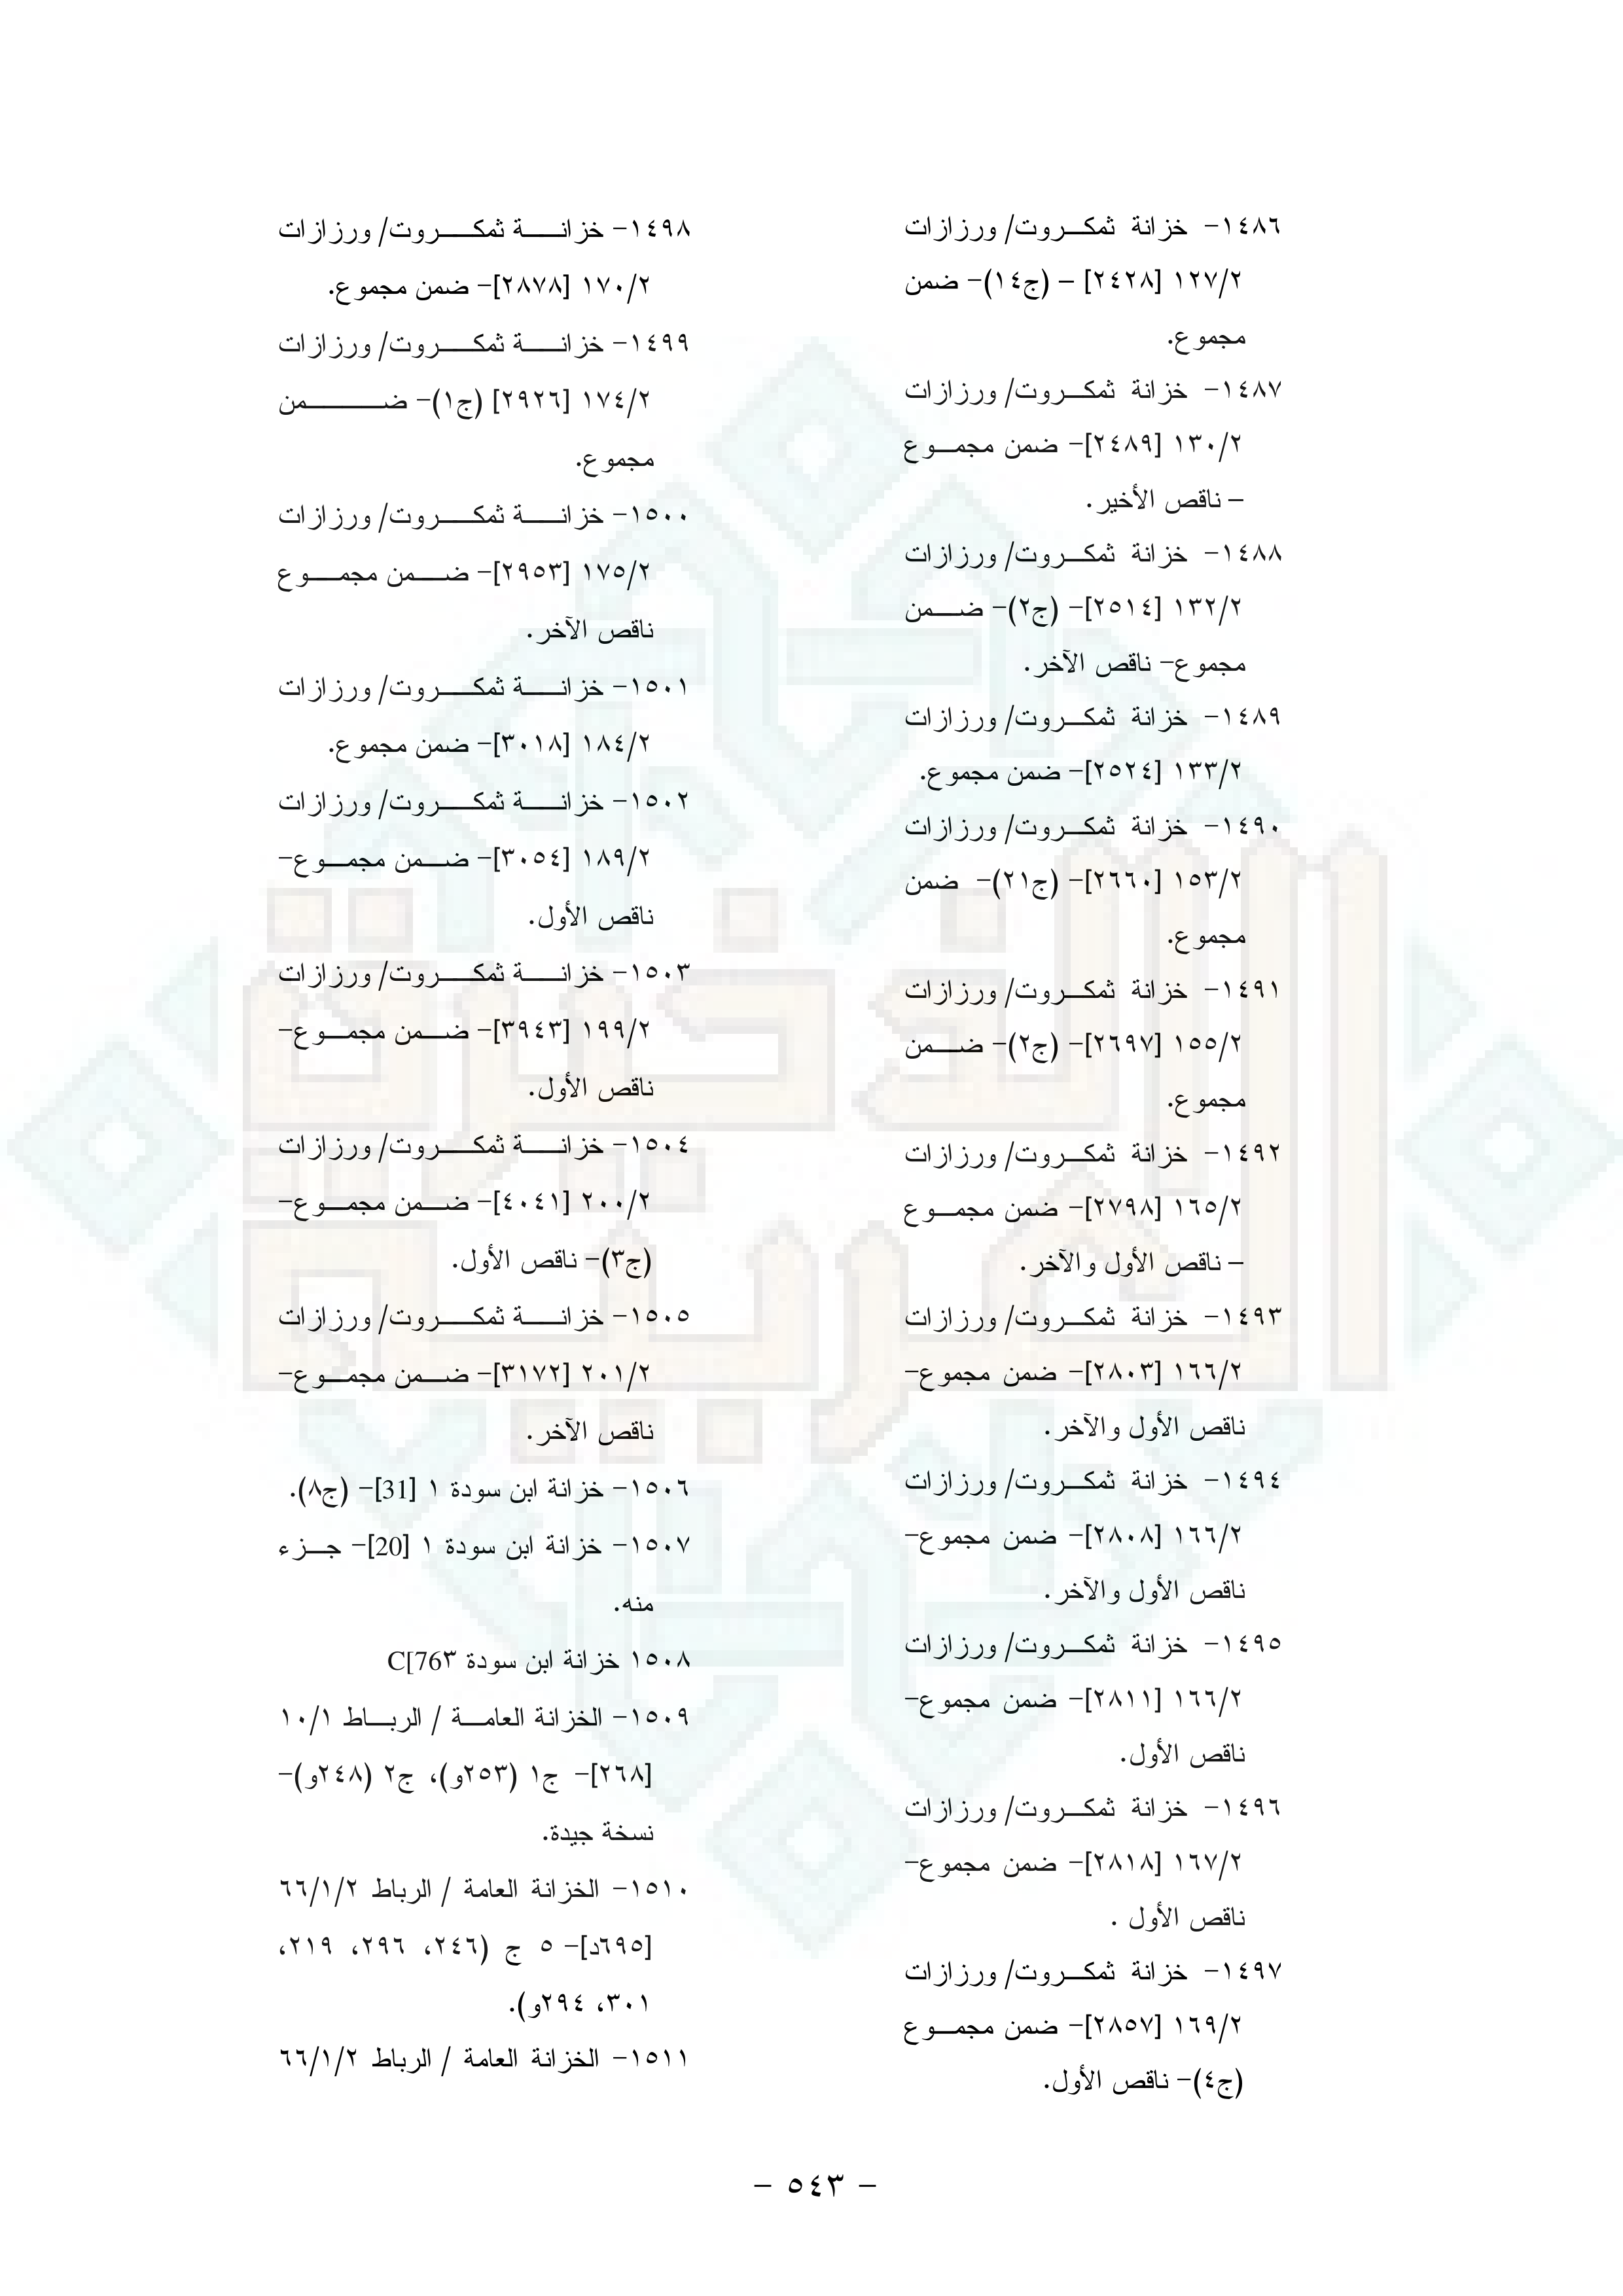 ١٤٨٦- خزانة ثمكروت/ ورزازات
١٢٧/٢ [٢٤٢٨] – (ج١٤)- ضمن
مجموع.
١٤٨٧- خزانة ثمكروت/ ورزازات
١٣٠/٢ [٢٤٨٩]- ضمن مجموع
– ناقص الأخير.
١٤٨٨- خزانة ثمكروت/ ورزازات
١٣٢/٢ [٢٥١٤]- (ج٢)- ضمن
مجموع- ناقص الآخر.
١٤٨٩- خزانة ثمكروت/ ورزازات
١٣٣/٢ [٢٥٢٤]- ضمن مجموع.
١٤٩٠- خزانة ثمكروت/ ورزازات
١٥٣/٢ [٢٦٦٠]- (ج٢١)- ضمن
مجموع.
١٤٩١- خزانة ثمكروت/ ورزازات
١٥٥/٢ [٢٦٩٧]- (ج٢)- ضمن
مجموع.
١٤٩٢- خزانة ثمكروت/ ورزازات
١٦٥/٢ [٢٧٩٨]- ضمن مجموع
– ناقص الأول والآخر.
١٤٩٣- خزانة ثمكروت/ ورزازات
١٦٦/٢ [٢٨٠٣]- ضمن مجموع-
ناقص الأول والآخر.
١٤٩٤- خزانة ثمكروت/ ورزازات
١٦٦/٢ [٢٨٠٨]- ضمن مجموع-
ناقص الأول والآخر.
١٤٩٥- خزانة ثمكروت/ ورزازات
١٦٦/٢ [٢٨١١]- ضمن مجموع-
ناقص الأول.
١٤٩٦- خزانة ثمكروت/ ورزازات
١٦٧/٢ [٢٨١٨]- ضمن مجموع-
ناقص الأول .
١٤٩٧- خزانة ثمكروت/ ورزازات
١٦٩/٢ [٢٨٥٧]- ضمن مجموع
(ج٤)- ناقص الأول.
١٤٩٨- خزانة ثمكروت/ ورزازات
١٧٠/٢ [٢٨٧٨]- ضمن مجموع.
١٤٩٩- خزانة ثمكروت/ ورزازات
١٧٤/٢ [٢٩٢٦] (ج١)- ضمن
مجموع.
١٥٠٠- خزانة ثمكروت/ ورزازات
١٧٥/٢ [٢٩٥٣]- ضمن مجموع
ناقص الآخر.
١٥٠١- خزانة ثمكروت/ ورزازات
١٨٤/٢ [٣٠١٨]- ضمن مجموع.
١٥٠٢- خزانة ثمكروت/ ورزازات
١٨٩/٢ [٣٠٥٤]- ضمن مجموع-
ناقص الأول.
١٥٠٣- خزانة ثمكروت/ ورزازات
١٩٩/٢ [٣٩٤٣]- ضمن مجموع-
ناقص الأول.
١٥٠٤- خزانة ثمكروت/ ورزازات
٢٠٠/٢ [٤٠٤١]- ضمن مجموع-
(ج٣)- ناقص الأول.
١٥٠٥- خزانة ثمكروت/ ورزازات
٢٠١/٢ [٣١٧٢]- ضمن مجموع-
ناقص الآخر.
١٥٠٦- خزانة ابن سودة ١ [31]- (ج٨).
١٥٠٧- خزانة ابن سودة ١ [20]- جزء
منه.
١٥٠٨ خزانة ابن سودة ٣C[76
١٥٠٩- الخزانة العامة / الرباط ١٠/١
[٢٦٨]- ج١ (٢٥٣و)، ج٢ (٢٤٨و)-
نسخة جيدة.
١٥١٠- الخزانة العامة / الرباط ٦٦/١/٢
[٦٩٥د]- ٥ ج (٢٤٦، ٢٩٦، ٢١٩،
٣٠١، ٢٩٤و).
١٥١١- الخزانة العامة / الرباط ٦٦/١/٢
- ٥٤٣ -
الذخيرة
العربية